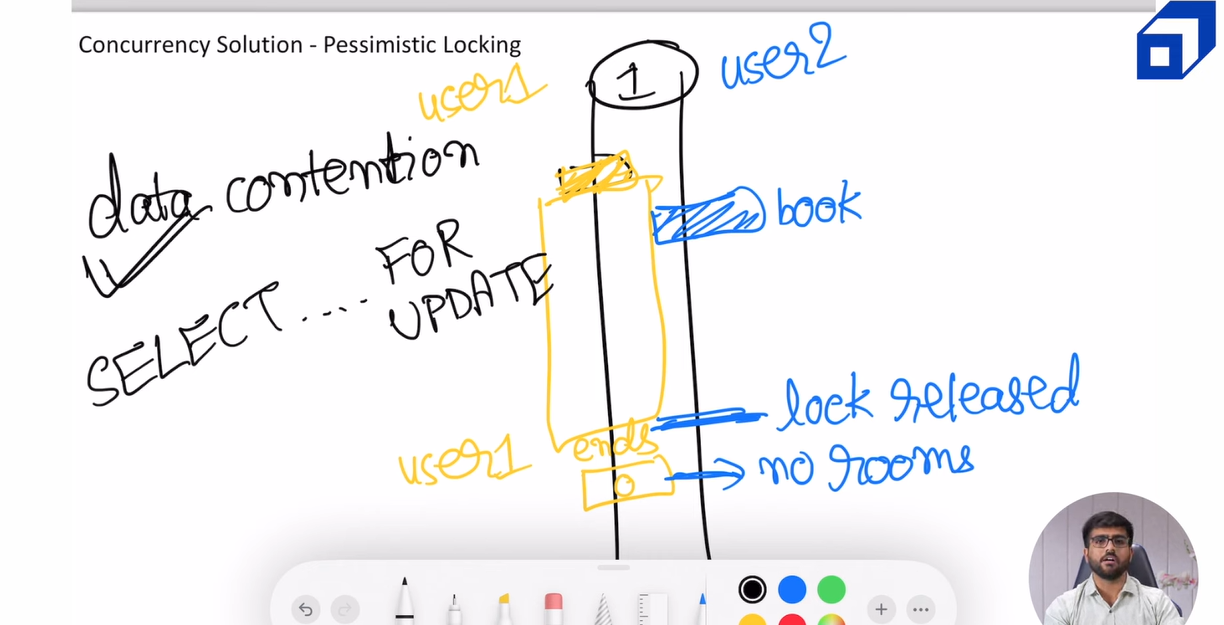 Concurrency Solution - Pessimistic Locking
user1
1
user2
data contention
book
SELECT .... FOR
UPDATE
lock released
user1
ends
0
no rooms